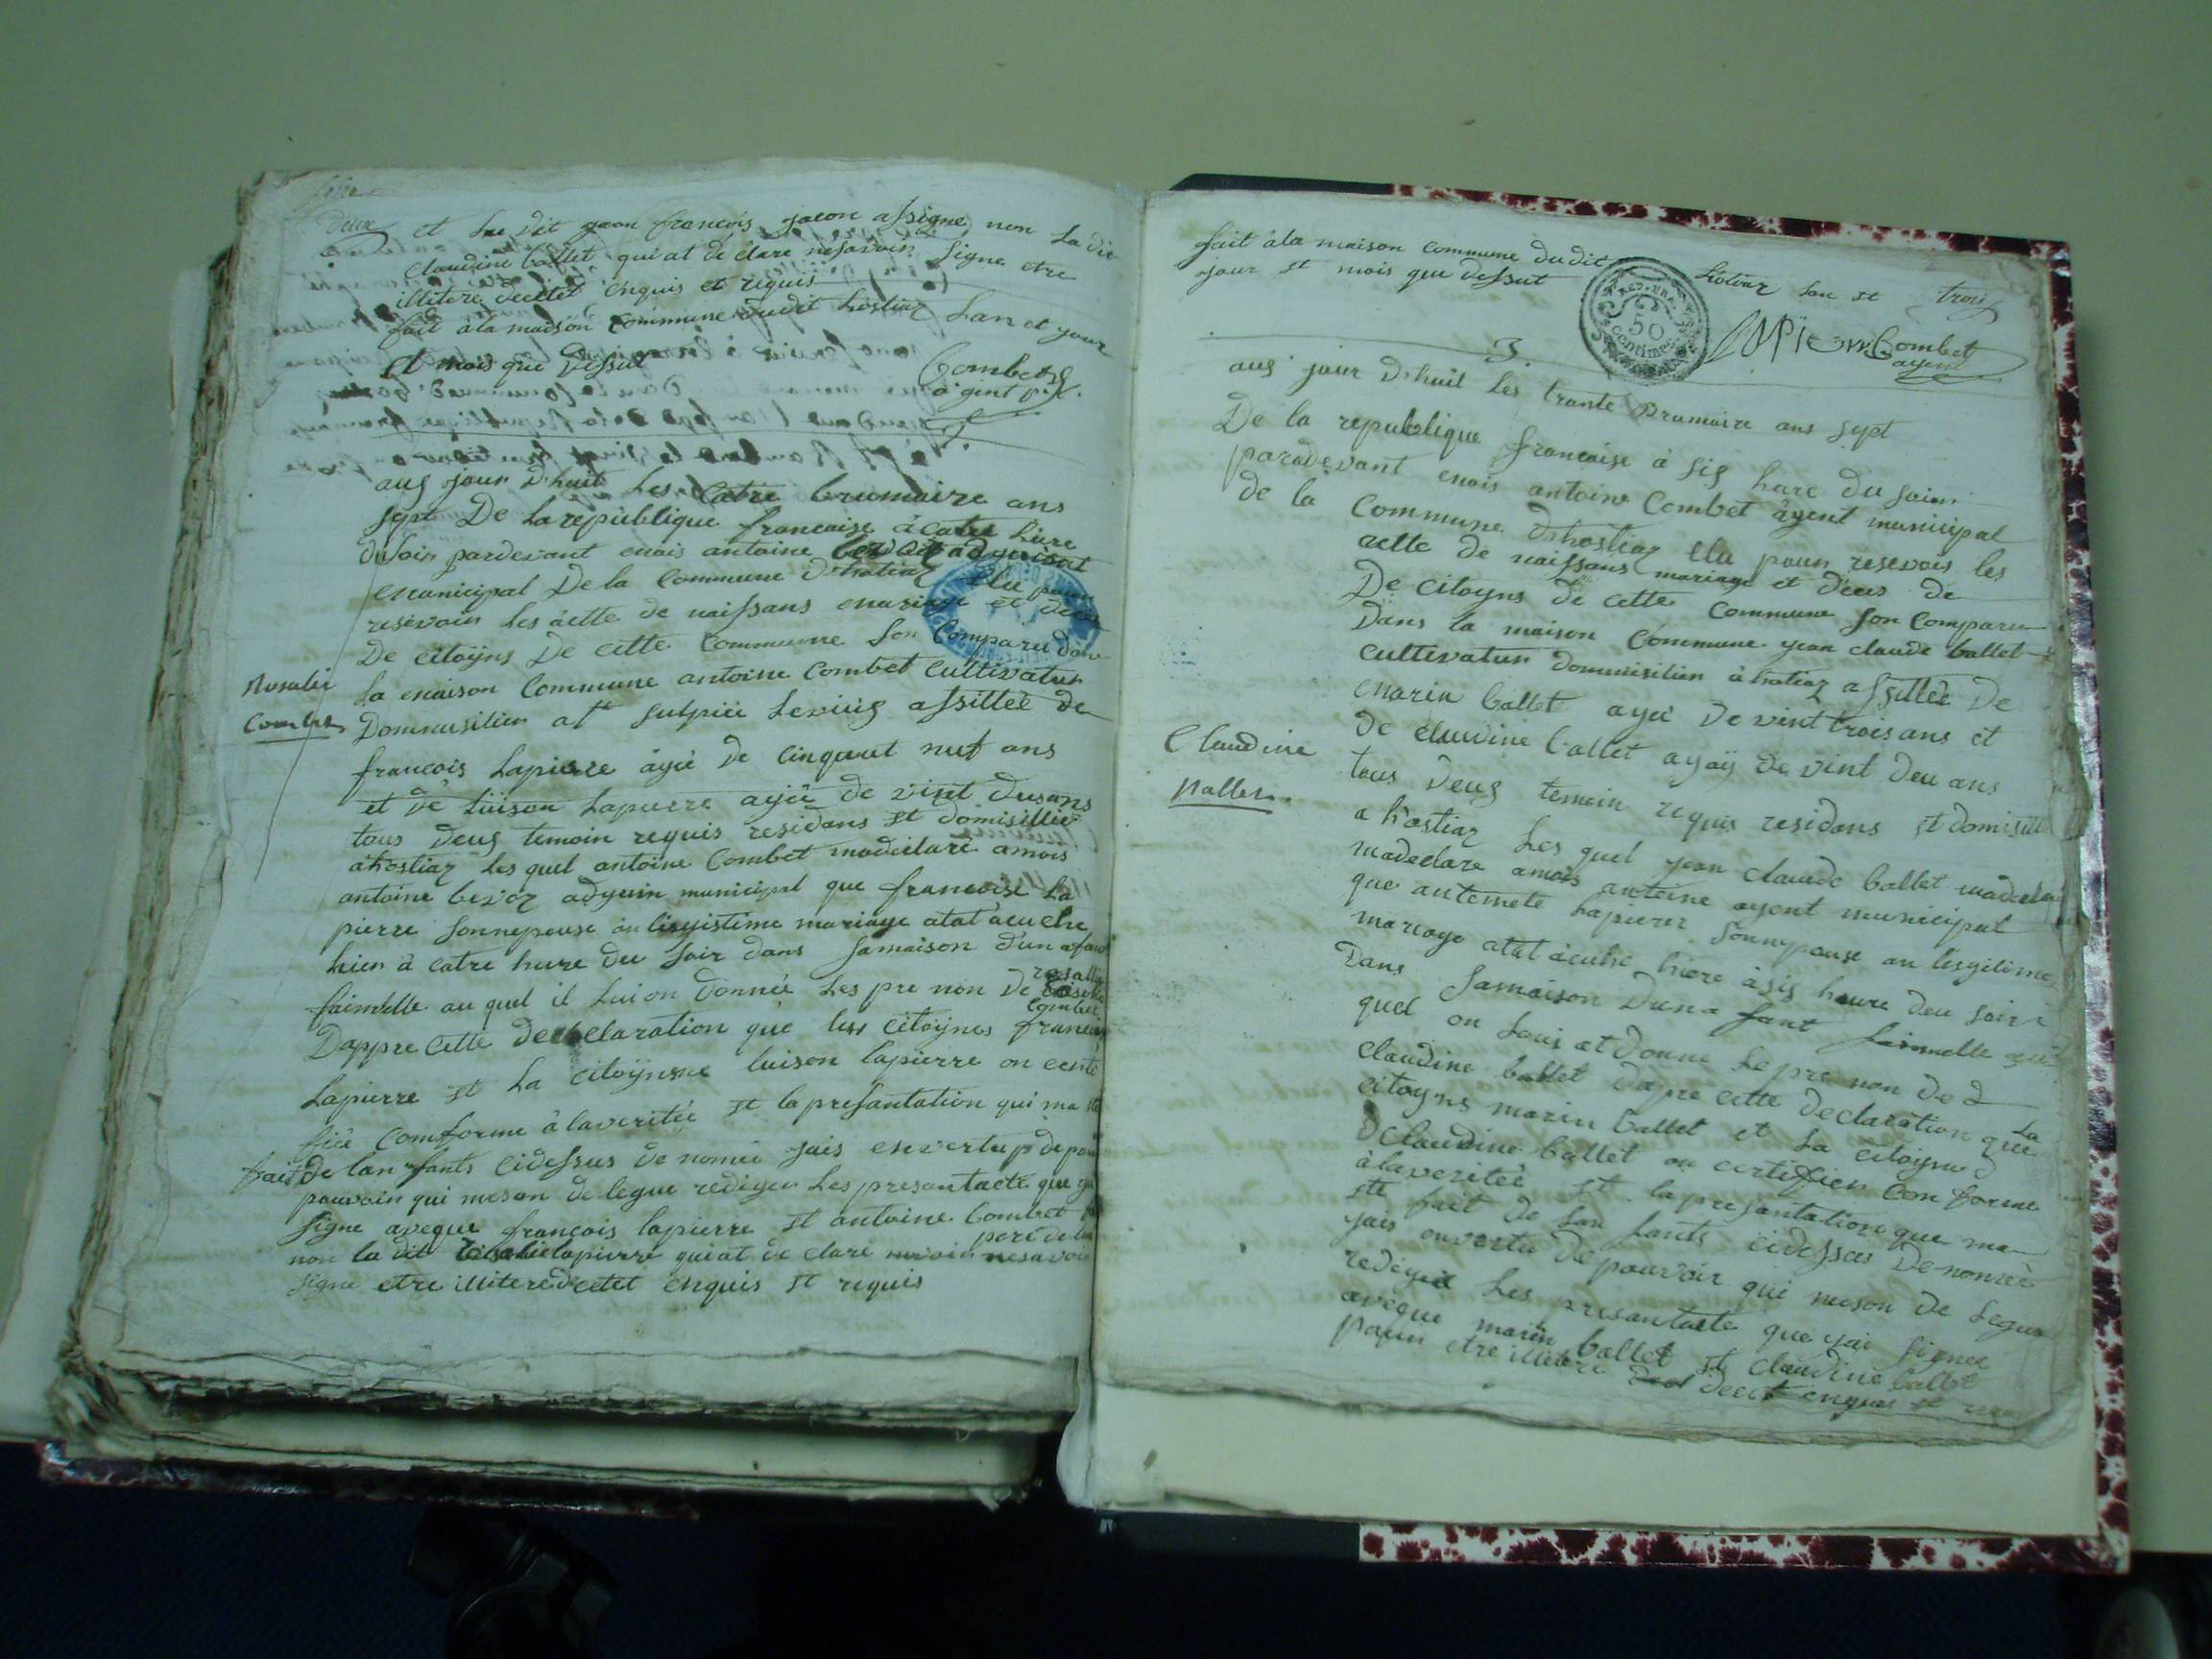 deux
et le dit jean francois jacon assigne non la dit
claudine ballet qui at de clare nesavoin signe etre
illitere decetet enquis et requis
fait à la maison commune dudit hostiaz Lan et jour
et mois que dessut
Combet
agent
2.
auj jour d'huit Les catre brumaire ans
sept De la republique francaise à catre hure
du soin pardevant enois antoine
municipal De la Commune d'hotiaz Elu pour
resevoin les àctte de naissans enariage et deces
De citoÿns De cette Commune son Comparu dans
la enaison Commune antoine Combet Cultivatur
Rosalie
Combet
Dommisilien a st sulpice Levieug assillée de
francois Lapierre âgée de cinquent nuf ans
et de Luison Lapierre agée de vint dusans
tous deus temoin requis residans st domisillié
à hostiaz Les quel antoine Combet madeclare amois
antoine bevoz adguin municipal que francoise La
pierre sonnepouse an lisgistime mariage atat acuche
hien à catre hure du soir dans samaison d'un anfant
faimelle au quel il Luion donnée Les pre non De
rosallie
Combet
Dappre cette declaration que les citoÿnes francois
Lapierre st La citoÿnne luison lapierre on certi
fiée comforme à laveritée st la presantation qui ma ete
fait De lan fants cidessus de nomée jais envertu de
pouvoin qui meson de legue redigen Les presantacte que jai
signe aveque francois lapierre st antoine Combet
pere de lan
non la dit lapierre qui at de clare nesavoin
signe etre illitere decetet enquis st requis
fait àla maison commune dudit hotiaz lan st trois
jour st mois que dessut
REP. FRA.
50
Centimes
lapierre
Combet
agent
3.
auj jour d'huit Les trante brumaire ans sept
De la republique francaise à sis hure du soin
paradevant enois antoine Combet âgent municipal
de la Commune d'hostiaz Elu poun resevois les
actte de naissans mariage et deces de
De citoyns de cette Commune son Comparu
Dans la maison Commune jean claude ballet
cultivatur dommisilien à hotiaz assillée De
marin ballet agée de vint trois ans et
de claudine ballet agaÿ de vint deu ans
Claudine
Ballet
tous deus temoin requis residans st domisill
a h'ostiaz Les quel jean claude ballet madeclare
madeclare amois antoine agent municipal
que antemete Lapierer sonnepouse an lisgitime
mariage atat àcuche hiere àsis heure deu soir
Dans samaison dun a fant faimelle au
quel on Louis at donne Le pre non de
claudine ballet dapre cette declaration que La
citoyns marin ballet et La citoyne
claudine ballet on certifien Com forme
àlaveritée st la presantation que ma
ete fait de lan fants cidessus De nomée
jais envertu de pouvoir qui meson de legue
redigen Les presantacte que jai signer
aveque marin ballet st claudine ballet
poun etre illitere decet enquis st requis